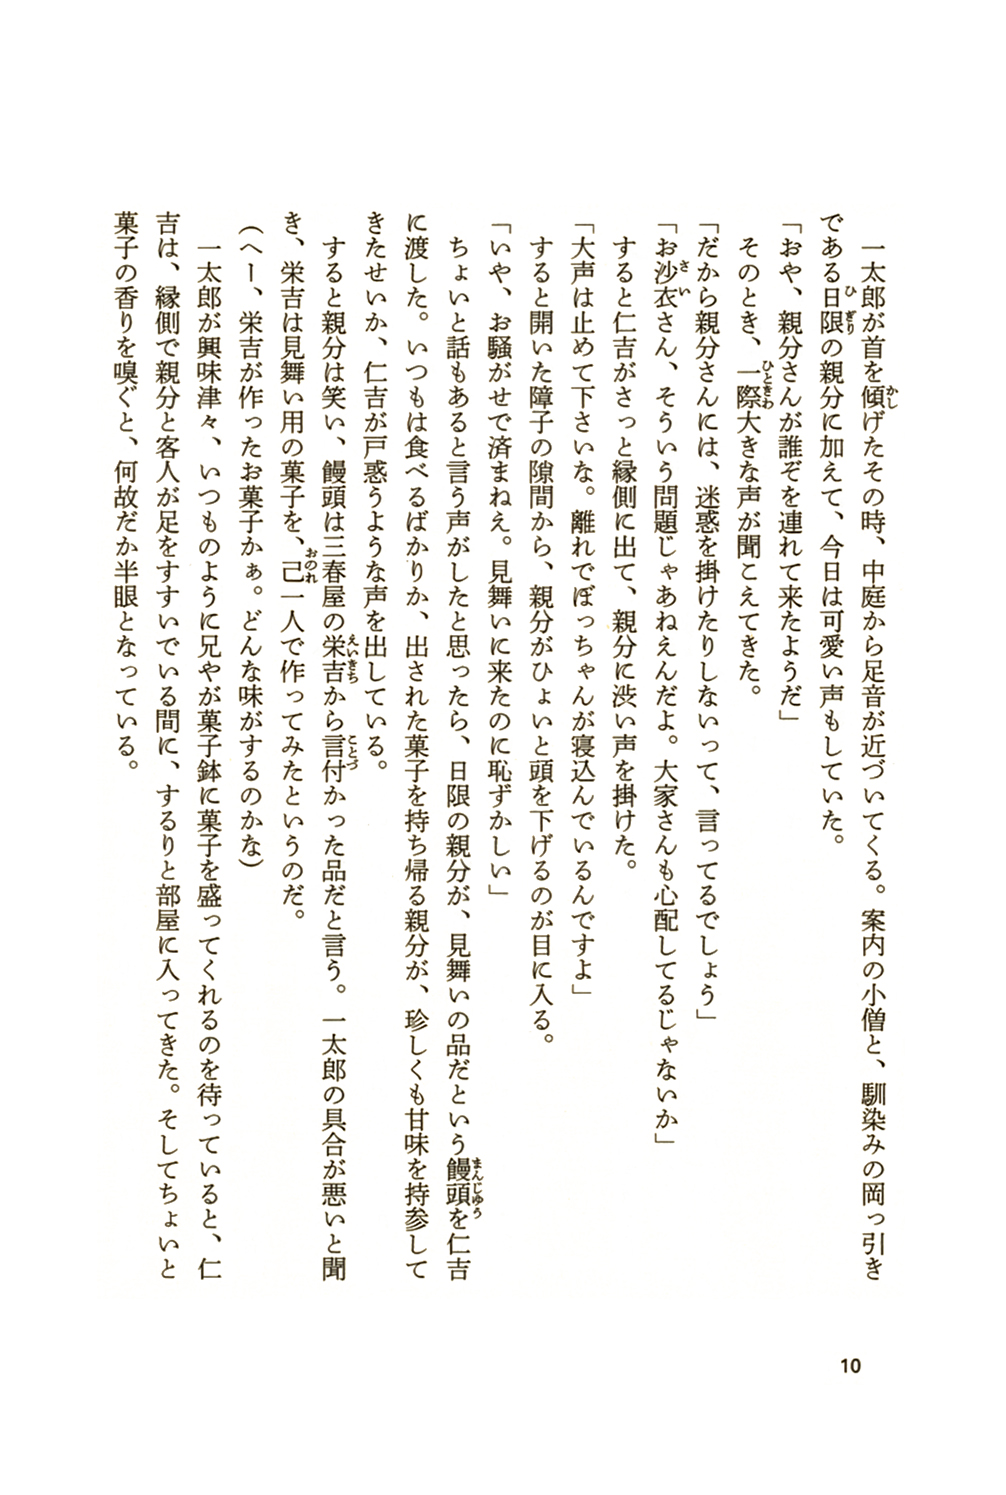 一太郎が首を傾げたその時、中庭から足音が近づいてくる。案内の小僧と、馴染みの岡っ引き
である日限の親分に加えて、今日は可愛い声もしていた。
「おや、親分さんが誰ぞを連れて来たようだ」
そのとき、一際大きな声が聞こえてきた。
「だから親分さんには、迷惑を掛けたりしないって、言ってるでしょう」
「お沙衣さん、そういう問題じゃあねえんだよ。大家さんも心配してるじゃないか」
すると仁吉がさっと縁側に出て、親分に渋い声を掛けた。
「大声は止めて下さいな。離れでぼっちゃんが寝込んでいるんですよ」
すると開いた障子の隙間から、親分がひょいと頭を下げるのが目に入る。
「いや、お騒がせで済まねえ。見舞いに来たのに恥ずかしい」
ちょいと話もあると言う声がしたと思ったら、日限の親分が、見舞いの品だという饅頭を仁吉
に渡した。いつもは食べるばかりか、出された菓子を持ち帰る親分が、珍しくも甘味を持参して
きたせいか、仁吉が戸惑うような声を出している。
すると親分は笑い、饅頭は三春屋の栄吉から言付かった品だと言う。一太郎の具合が悪いと聞
き、栄吉は見舞い用の菓子を、己一人で作ってみたというのだ。
（へー、栄吉が作ったお菓子かぁ。どんな味がするのかな）
一太郎が興味津々、いつものように兄やが菓子鉢に菓子を盛ってくれるのを待っていると、仁
吉は、縁側で親分と客人が足をすすいでいる間に、するりと部屋に入ってきた。そしてちょいと
菓子の香りを嗅ぐと、何故だか半眼となっている。
10